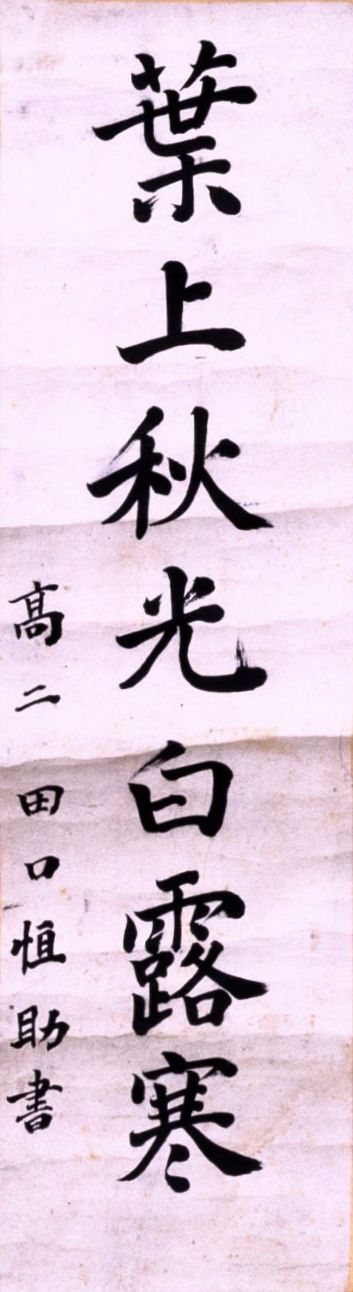 葉上秋光白露寒
髙二 田口恒助書